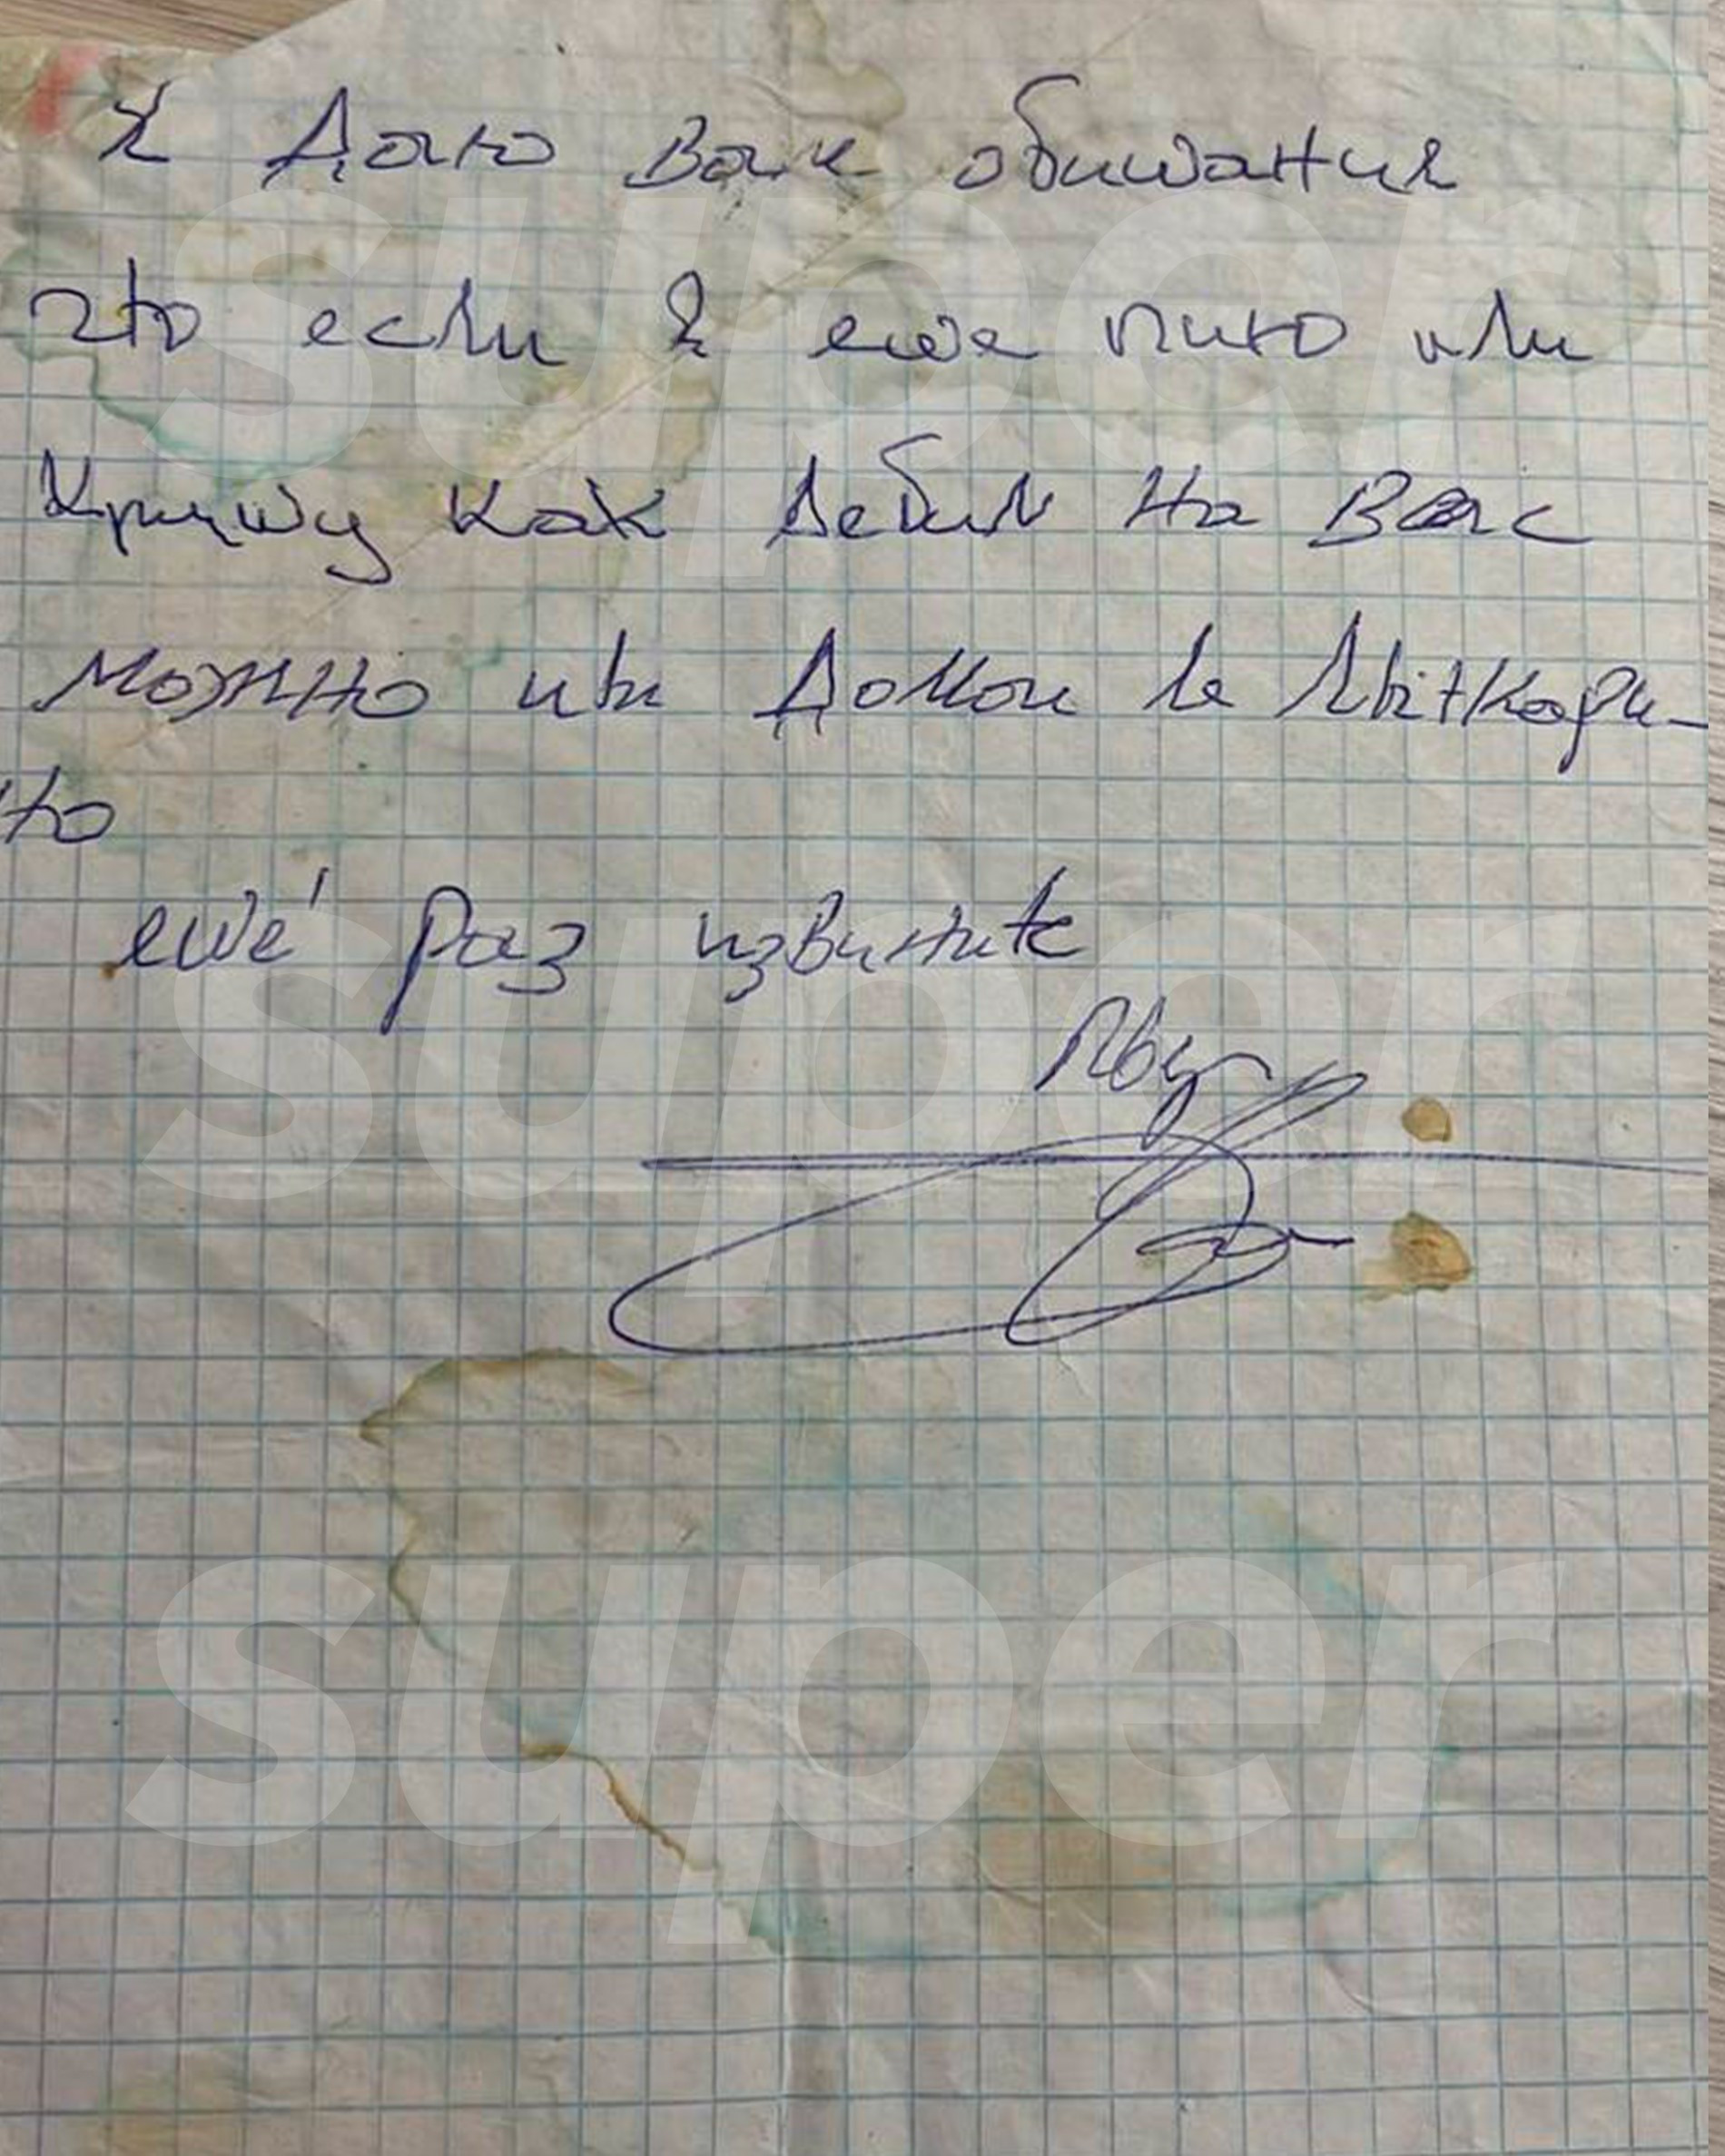 Я Даю Вам обищания
что если я еще пию или
Кричшу как Дебил на Вас
можно ити Домой
но
ещё раз извините
super
super
super